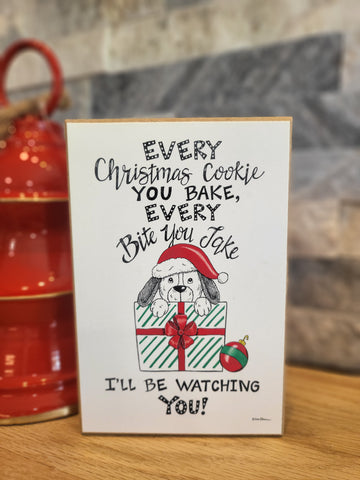 EVERY
Christmas Cookie
YOU BAKE,
EVERY
Bite You Take
I'LL BE WATCHING
You!